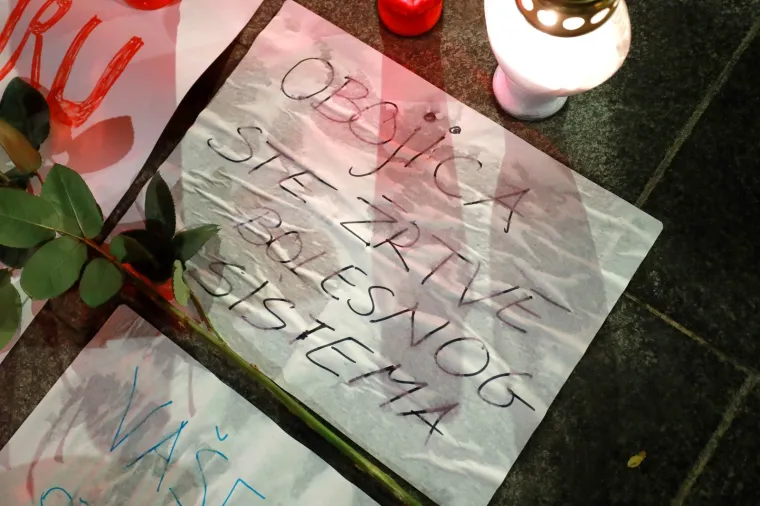 RU
OBOJICA
STE ŽRTVE
BOLESNOG
SISTEMA
VAŠE